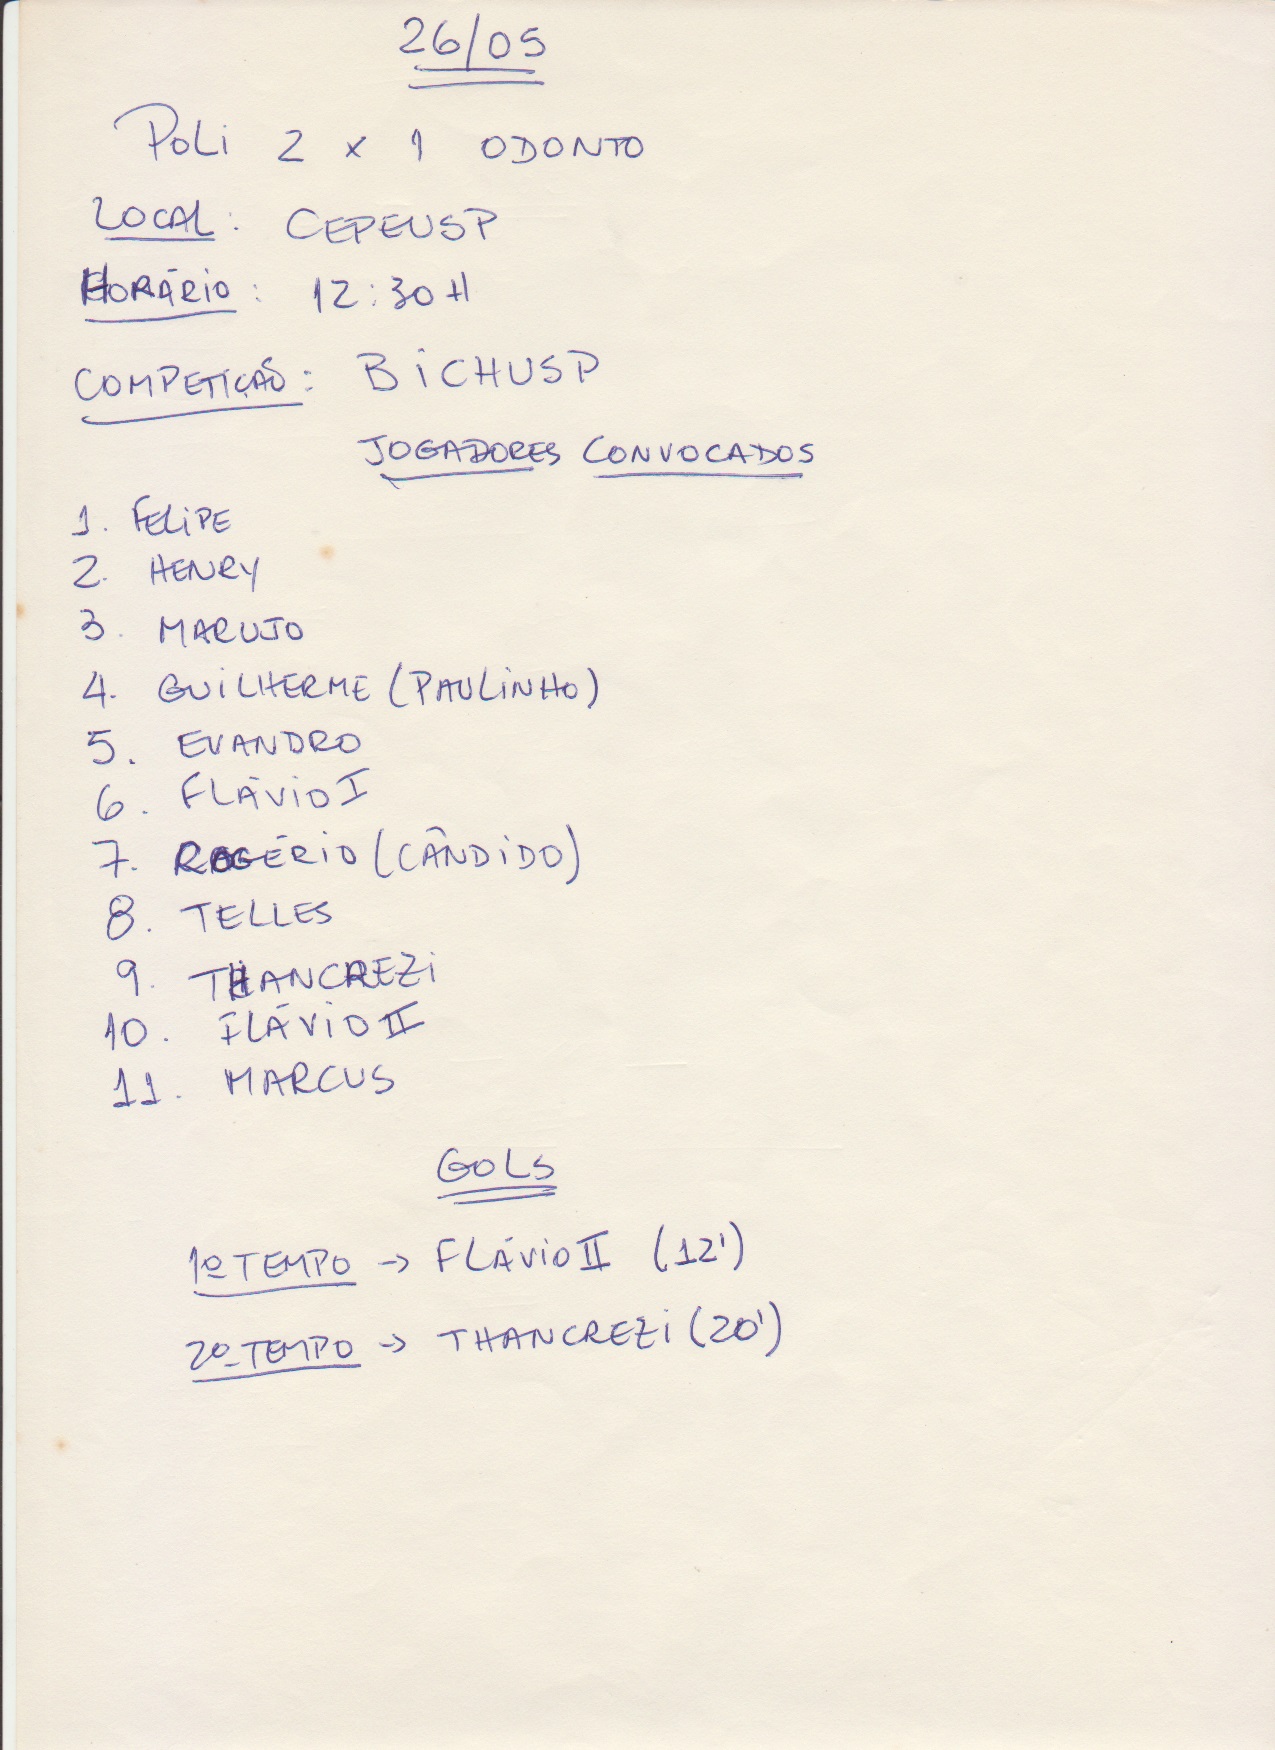 26/05
POLi 2 x 1 ODONTO
LOCAL: CEPEUSP
HORÁRIO: 12:30H
COMPETIÇÃO: BiCHUSP
JOGADORES CONVOCADOS
1. FELIPE
2. HENRY
3. MARUJO
4. GUILHERME (PAULINHO)
5. EVANDRO
6. FLÁVIO I
7. ROGÉRIO (CÂNDIDO)
8. TELLES
9. THANCREZi
10. FLÁVIO II
11. MARCUS
GOLS
1º TEMPO → FLÁVIO II (12')
2º TEMPO → THANCREZi (20')